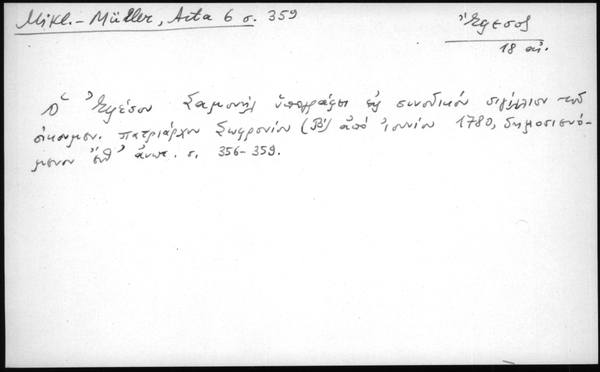 Mikl.-Müller, Acta 6 σ. 359
Ἔφεσος
18 αἰ.
Ὁ Ἐφέσου Σαμουὴλ ὑπογράφει εἰς συνοδικὸν σιγίλλιον τοῦ
οἰκουμεν. πατριάρχου Σωφρονίου (Β') ἀπὸ ἰουνίου 1780, δημοσιευό-
μενον ἐπ' ἀνωτ. σ. 356-359.